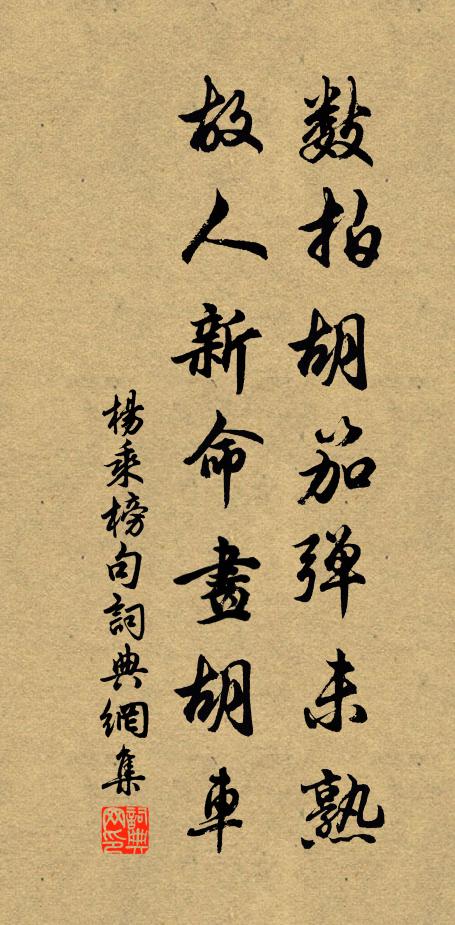 数拍胡笳弹未熟
故人新命畫胡車
楊乘榜句詞典網集
詞典网印